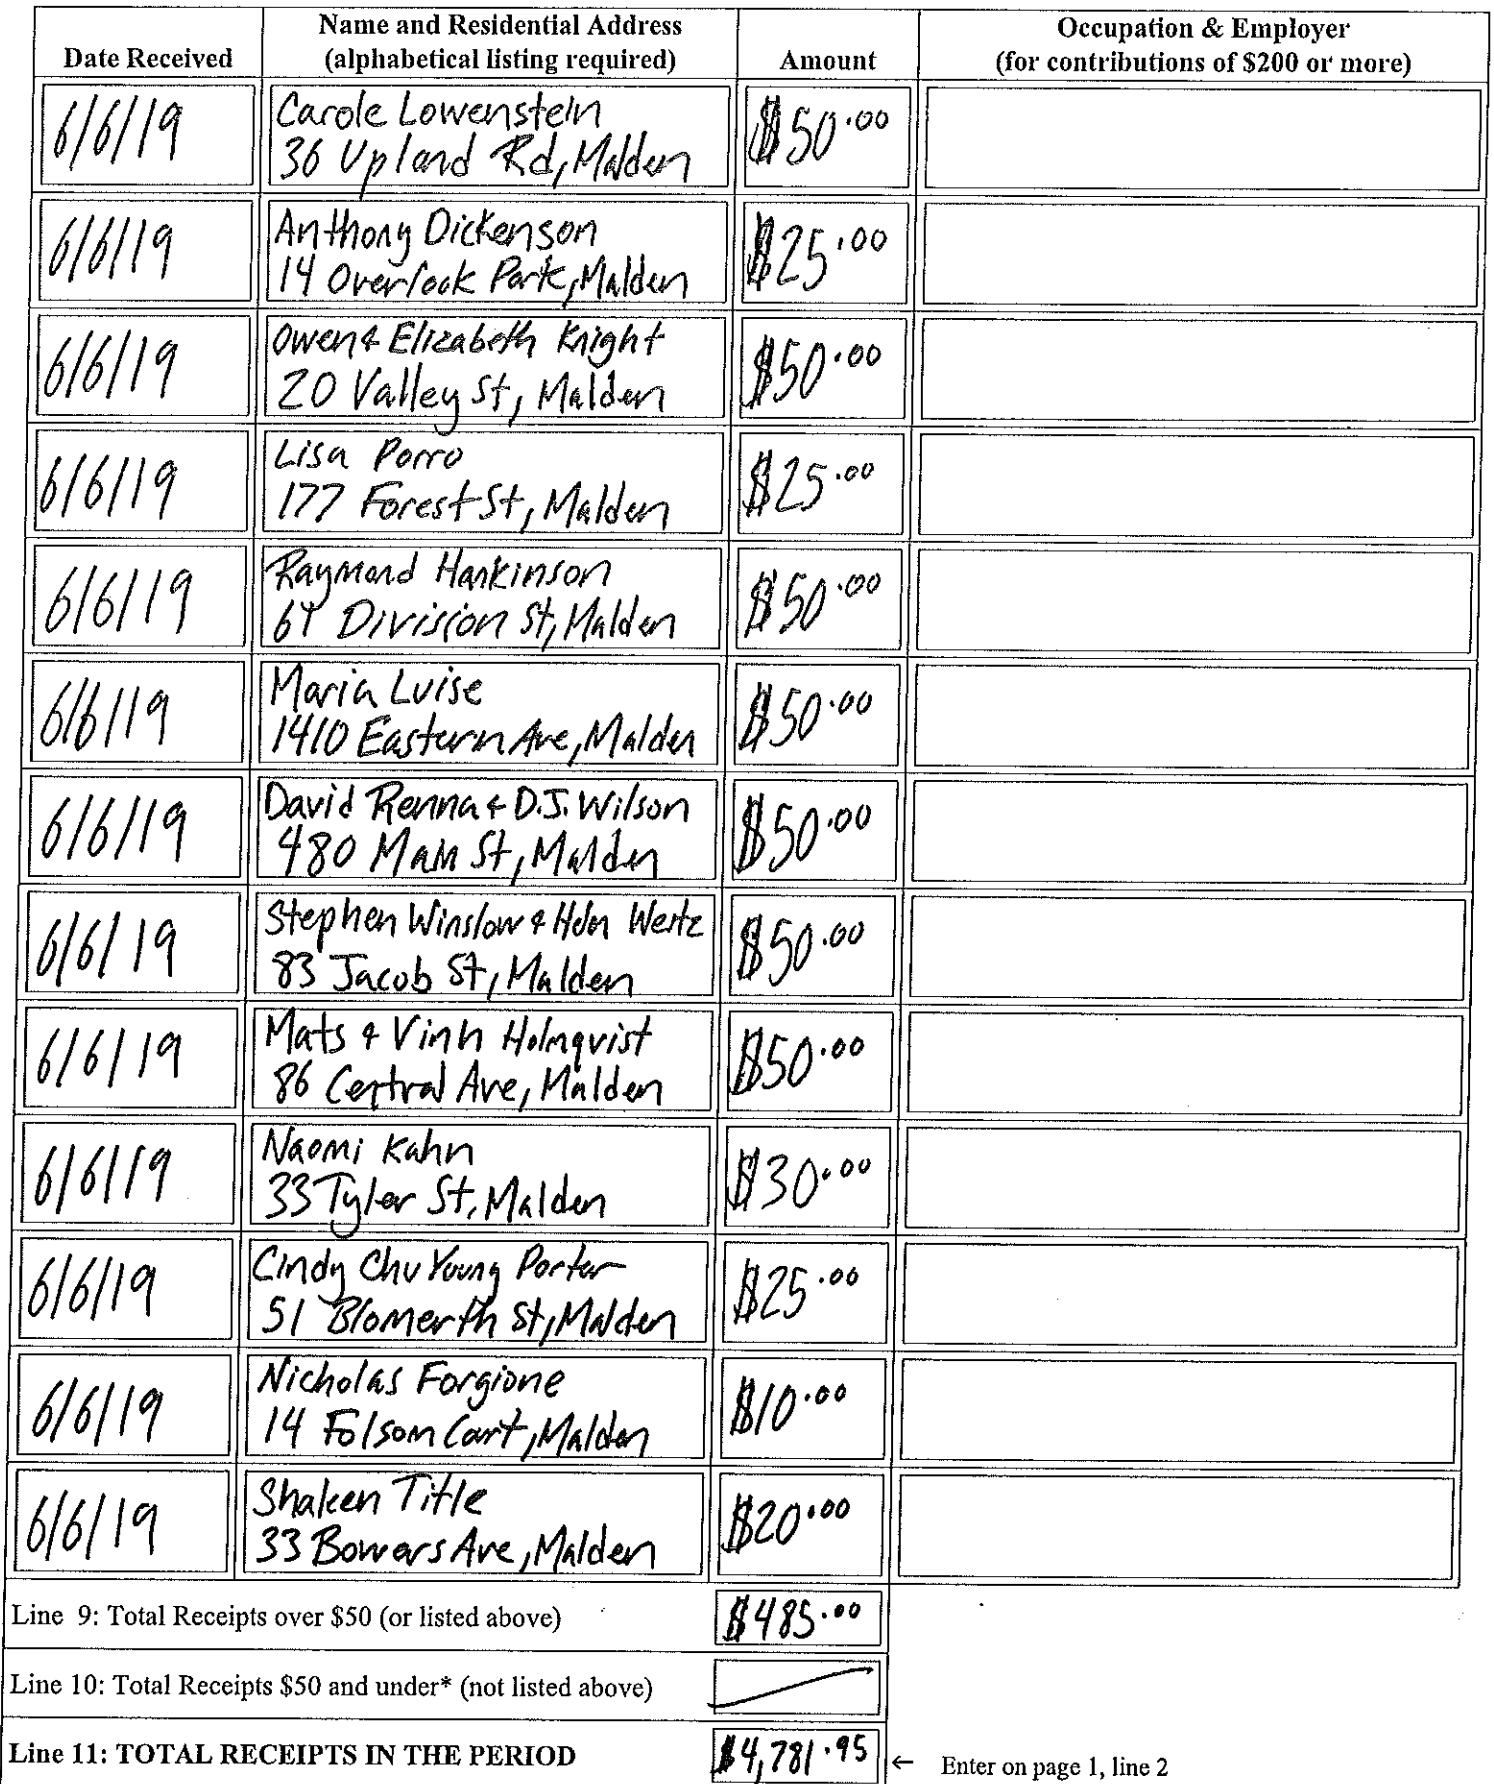 Date Received
Name and Residential Address
(alphabetical listing required)
Amount
Occupation & Employer
(for contributions of $200 or more)
6/6/19
Carole Lowenstein
36 Upland Rd, Malden
$50.00
6/6/19
Anthony Dickenson
14 Overlook Park, Malden
$25.00
6/6/19
Owen & Elizabeth Knight
20 Valley St, Malden
$50.00
6/6/19
Lisa Porro
177 Forest St, Malden
$25.00
6/6/19
Raymond Hankinson
64 Division St, Malden
$50.00
6/6/19
Maria Luise
1410 Eastern Ave, Malden
$50.00
6/6/19
David Renna & D.J. Wilson
480 Main St, Malden
$50.00
6/6/19
Stephen Winslow & Wertz
83 Jacob St, Malden
$50.00
6/6/19
Mats & Vinh Holmqvist
86 Central Ave, Malden
$50.00
6/6/19
Naomi Kahn
33 Tyler St, Malden
$30.00
6/6/19
Cindy Chu Young Porter
51 Blomerth St, Malden
$25.00
6/6/19
Nicholas Forgione
14 Folsom Court, Malden
$10.00
6/6/19
Shaleen Title
33 Bowers Ave, Malden
$20.00
Line 9: Total Receipts over $50 (or listed above)
$485.00
Line 10: Total Receipts $50 and under* (not listed above)
Line 11: TOTAL RECEIPTS IN THE PERIOD
$4,781.95
← Enter on page 1, line 2